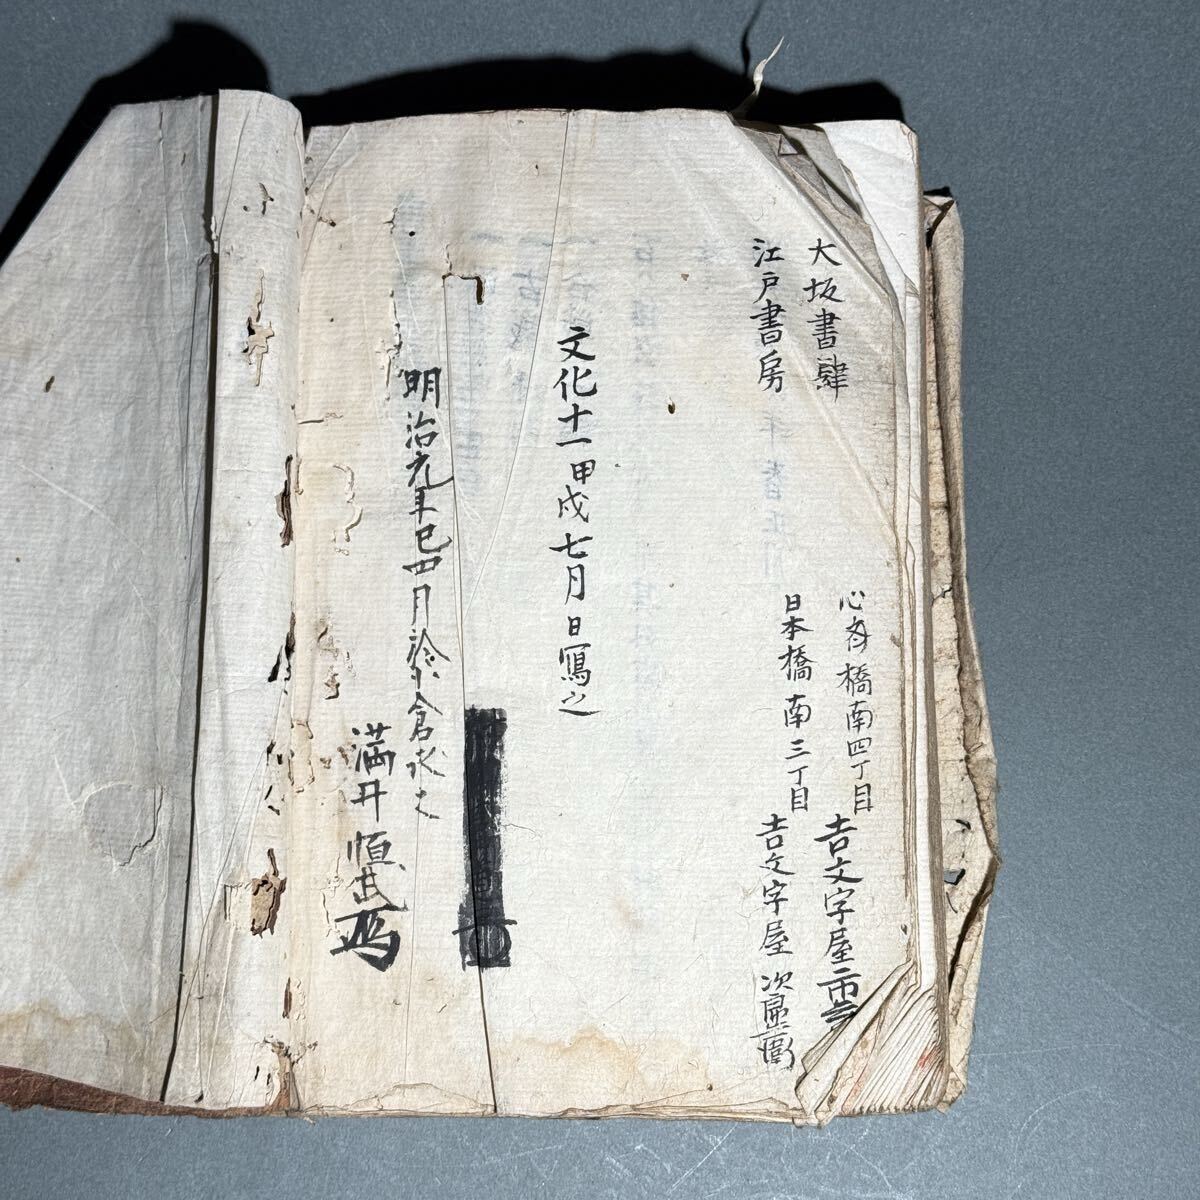 大坂書肆 心斎橋南四丁目 吉文字屋市
江戸書房 日本橋南三丁目 吉文字屋次
文化十一甲戌七月日寫之
明治元年巳四月 倉求之
満井恒武